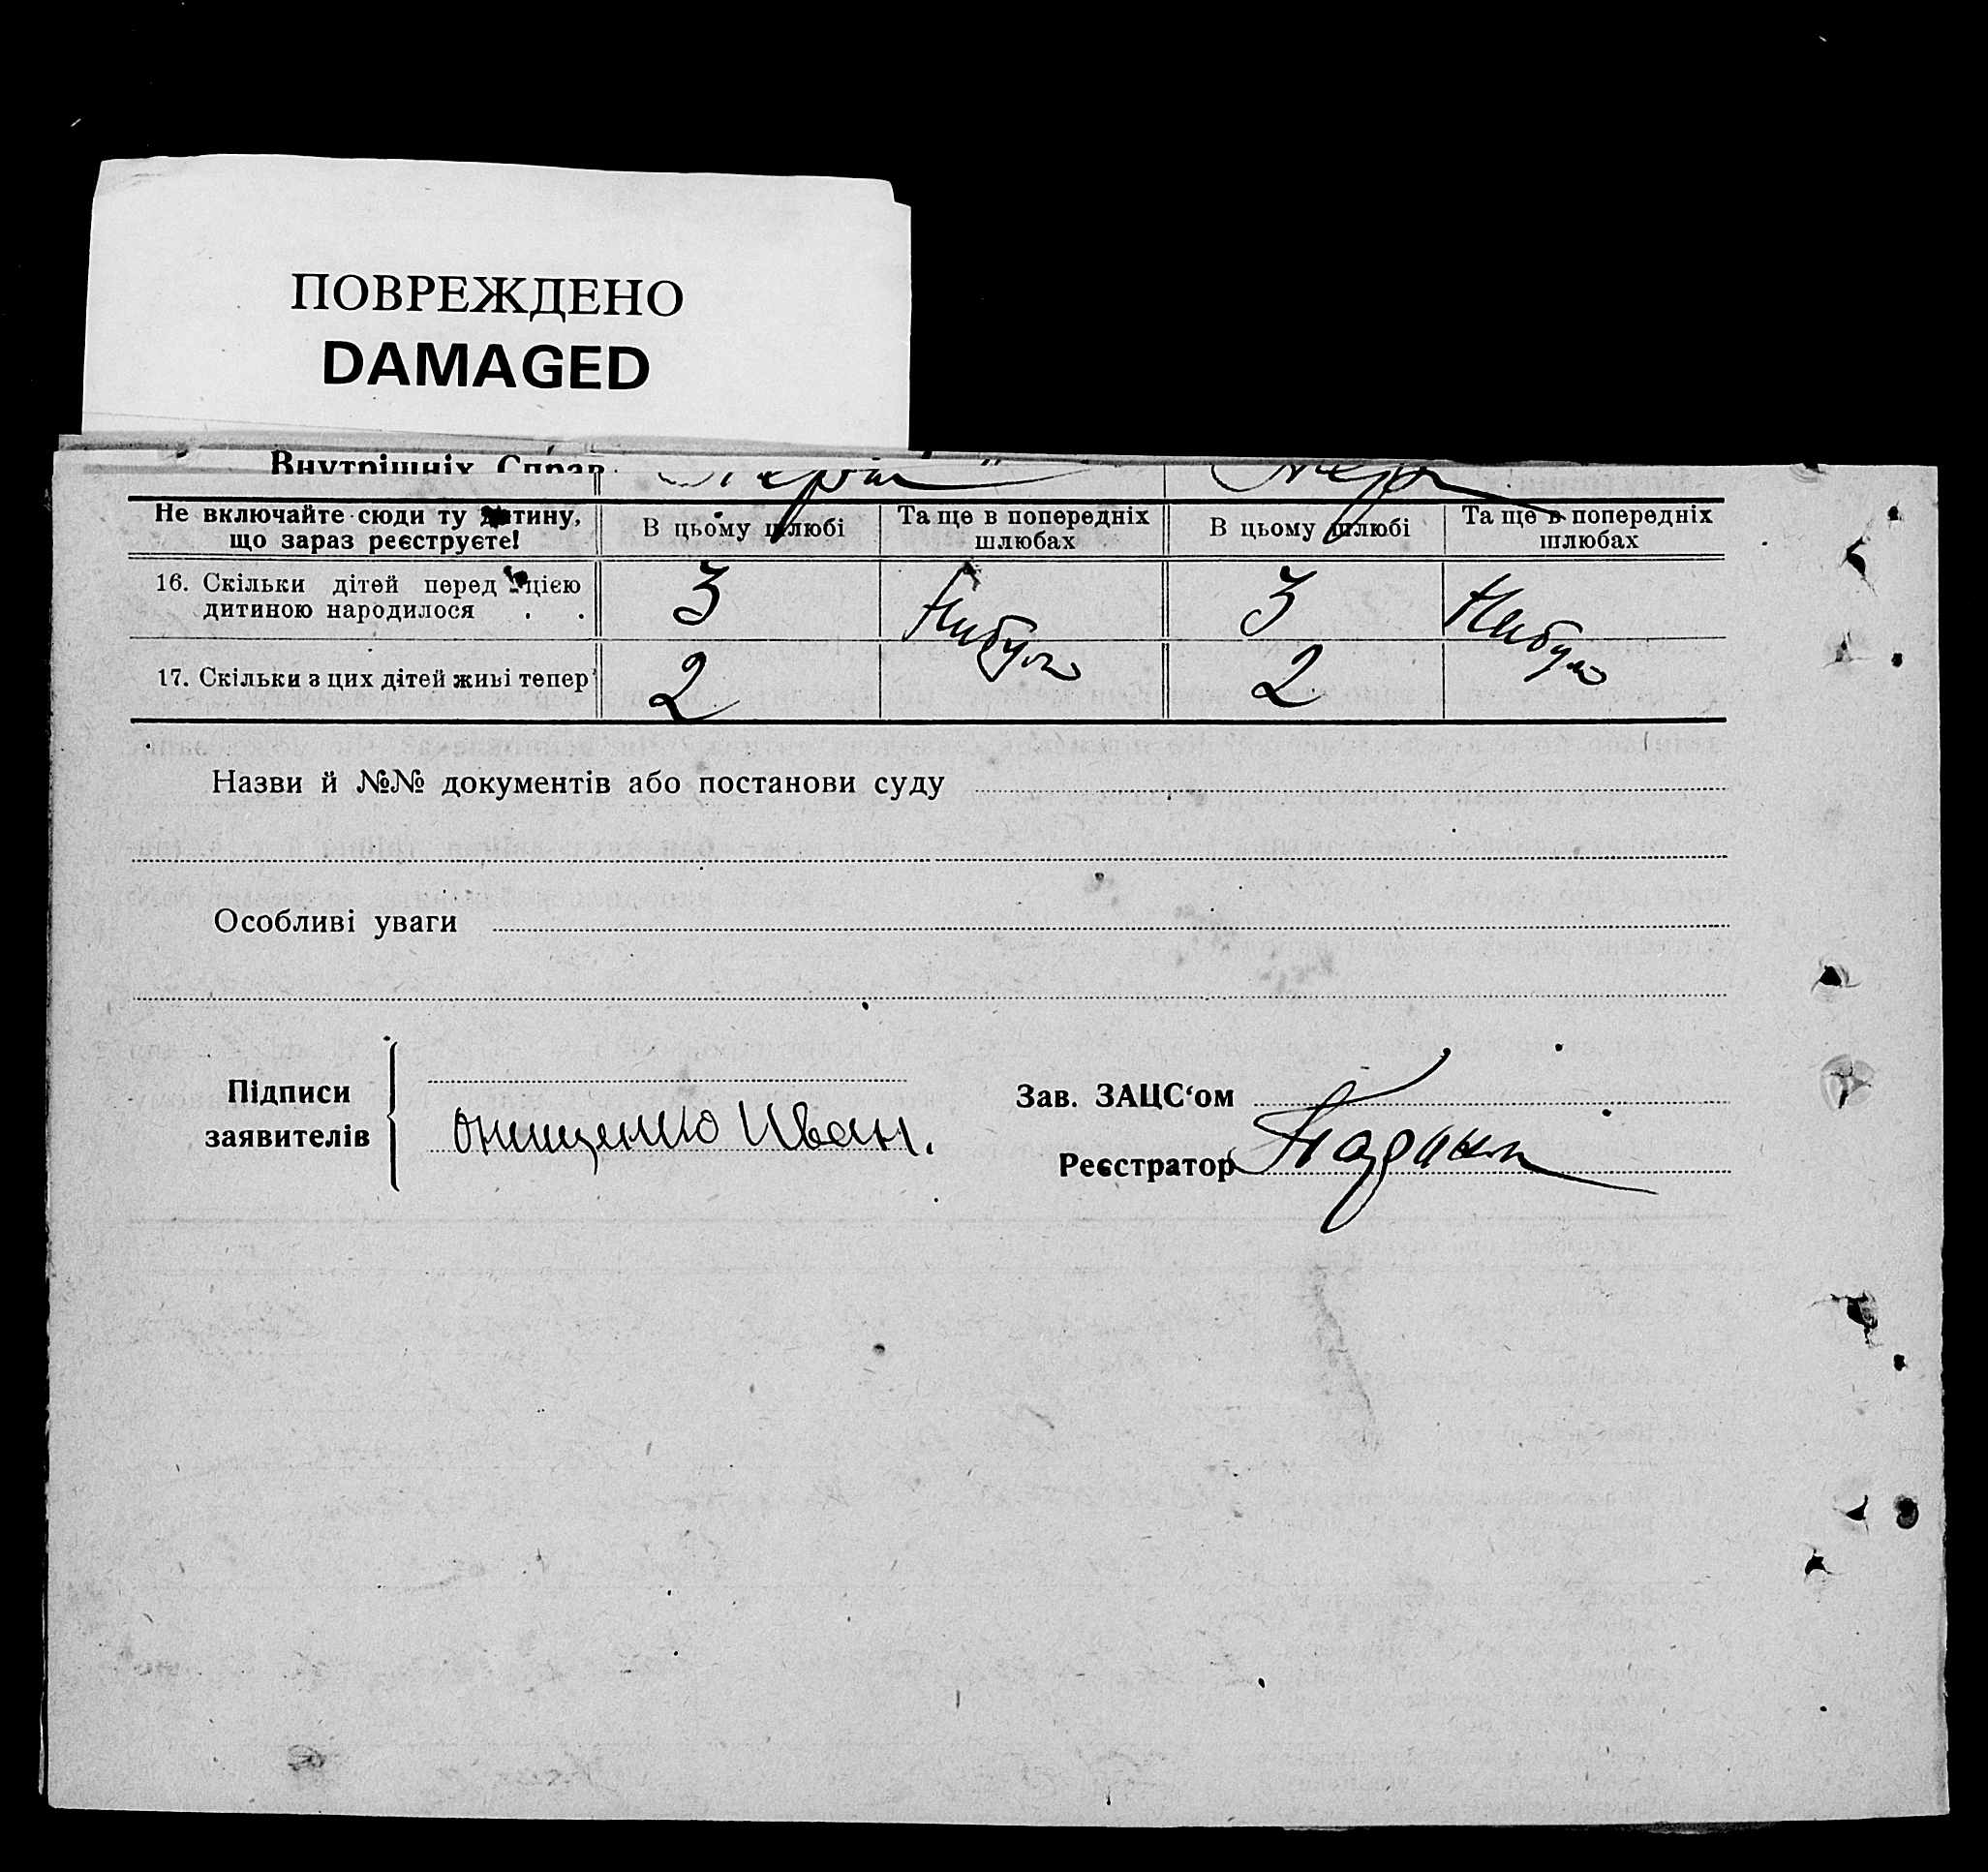 ПОВРЕЖДЕНО
DAMAGED
Внутрішніх Справ.
Не включайте сюди ту дитину, що зараз реєструєте!
В цьому шлюбі
Та ще в попередніх шлюбах
В цьому шлюбі
Та ще в попередніх шлюбах
16. Скільки дітей перед цією дитиною народилося . .
3
Нибуло
3
Нибуло
17. Скільки з цих дітей живі тепер
2
2
Назви й №№ документів або постанови суду
Особливі уваги
Підписи заявителів
Онищенко Иван.
Зав. ЗАЦС‘ом
Реєстратор